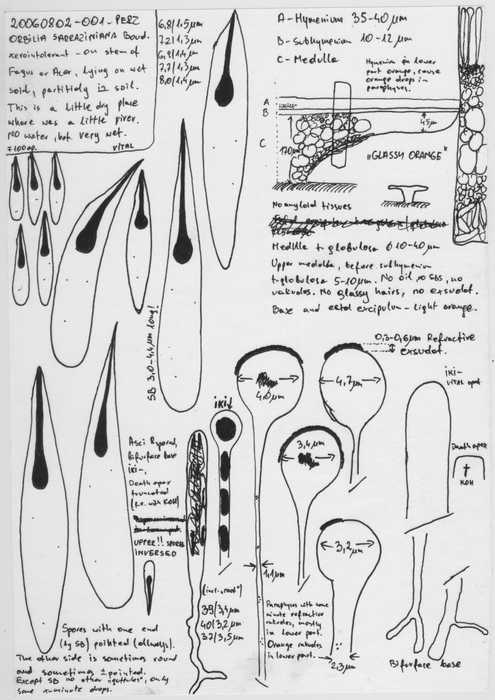 20060802-001-PERZ
ORBILIA SARRAZINIANA Boud.
xerointolerant - on stem of
Fagus or Acer, lying on wet
soil, partitaly in soil.
This is a little dry place
where was a little river.
NO water, but very wet.
VITAL
6,8/1,5µm
7,2/1,3µm
7,7/1,3µm
8,0/1,4µm
A - Hymenium 35-40µm
B - Subhymenium 10-12µm
C - Medulla
Hymenium in lower
part orange, cause
orange drops in
paraphyses.
A
B
C
170µm
45µm
"GLASSY ORANGE"
No amyloid tissues
Medulla t. globulosa ϕ 10-40µm
Upper medulla, before subhymenium
t. globulosa 5-10µm. No oil, no SBs, no
vakuoles. No glassy hairs, no exsudat.
Base and ectal excipulum - light orange.
SB 3,0-4,4µm long!
0,3-0,6µm Refractive
exsudat.
IKI-
VITAL apex
4,0µm
4,7µm
IKI↓
3,4µm
Death apex
KOH
Asci 8spored,
Bifurface base
IKI-,
Death apex
truncated
UPPER!! SPORES
INVERSED
3,2µm
1,1µm
39/3,4µm
40/3,2µm
37/3,5µm
Paraphyses with some
minute refractive
vakuoles, mostly
in lower part.
Orange vakuoles
in lower part.
2,3µm
Bifurface base
Spores with one end
(by SB) pointed (always).
The other side is sometimes round
and sometimes pointed.
Except SB no other iguttules, only
some miminute drops.